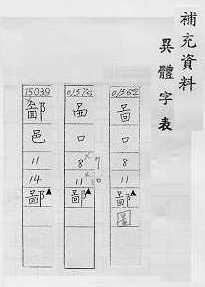 補充資料
異體字表
01562
啚
口
8
11
鄙▲
口
8 × 7
11 × 10
鄙▲
15039
邑
11
14
鄙▲